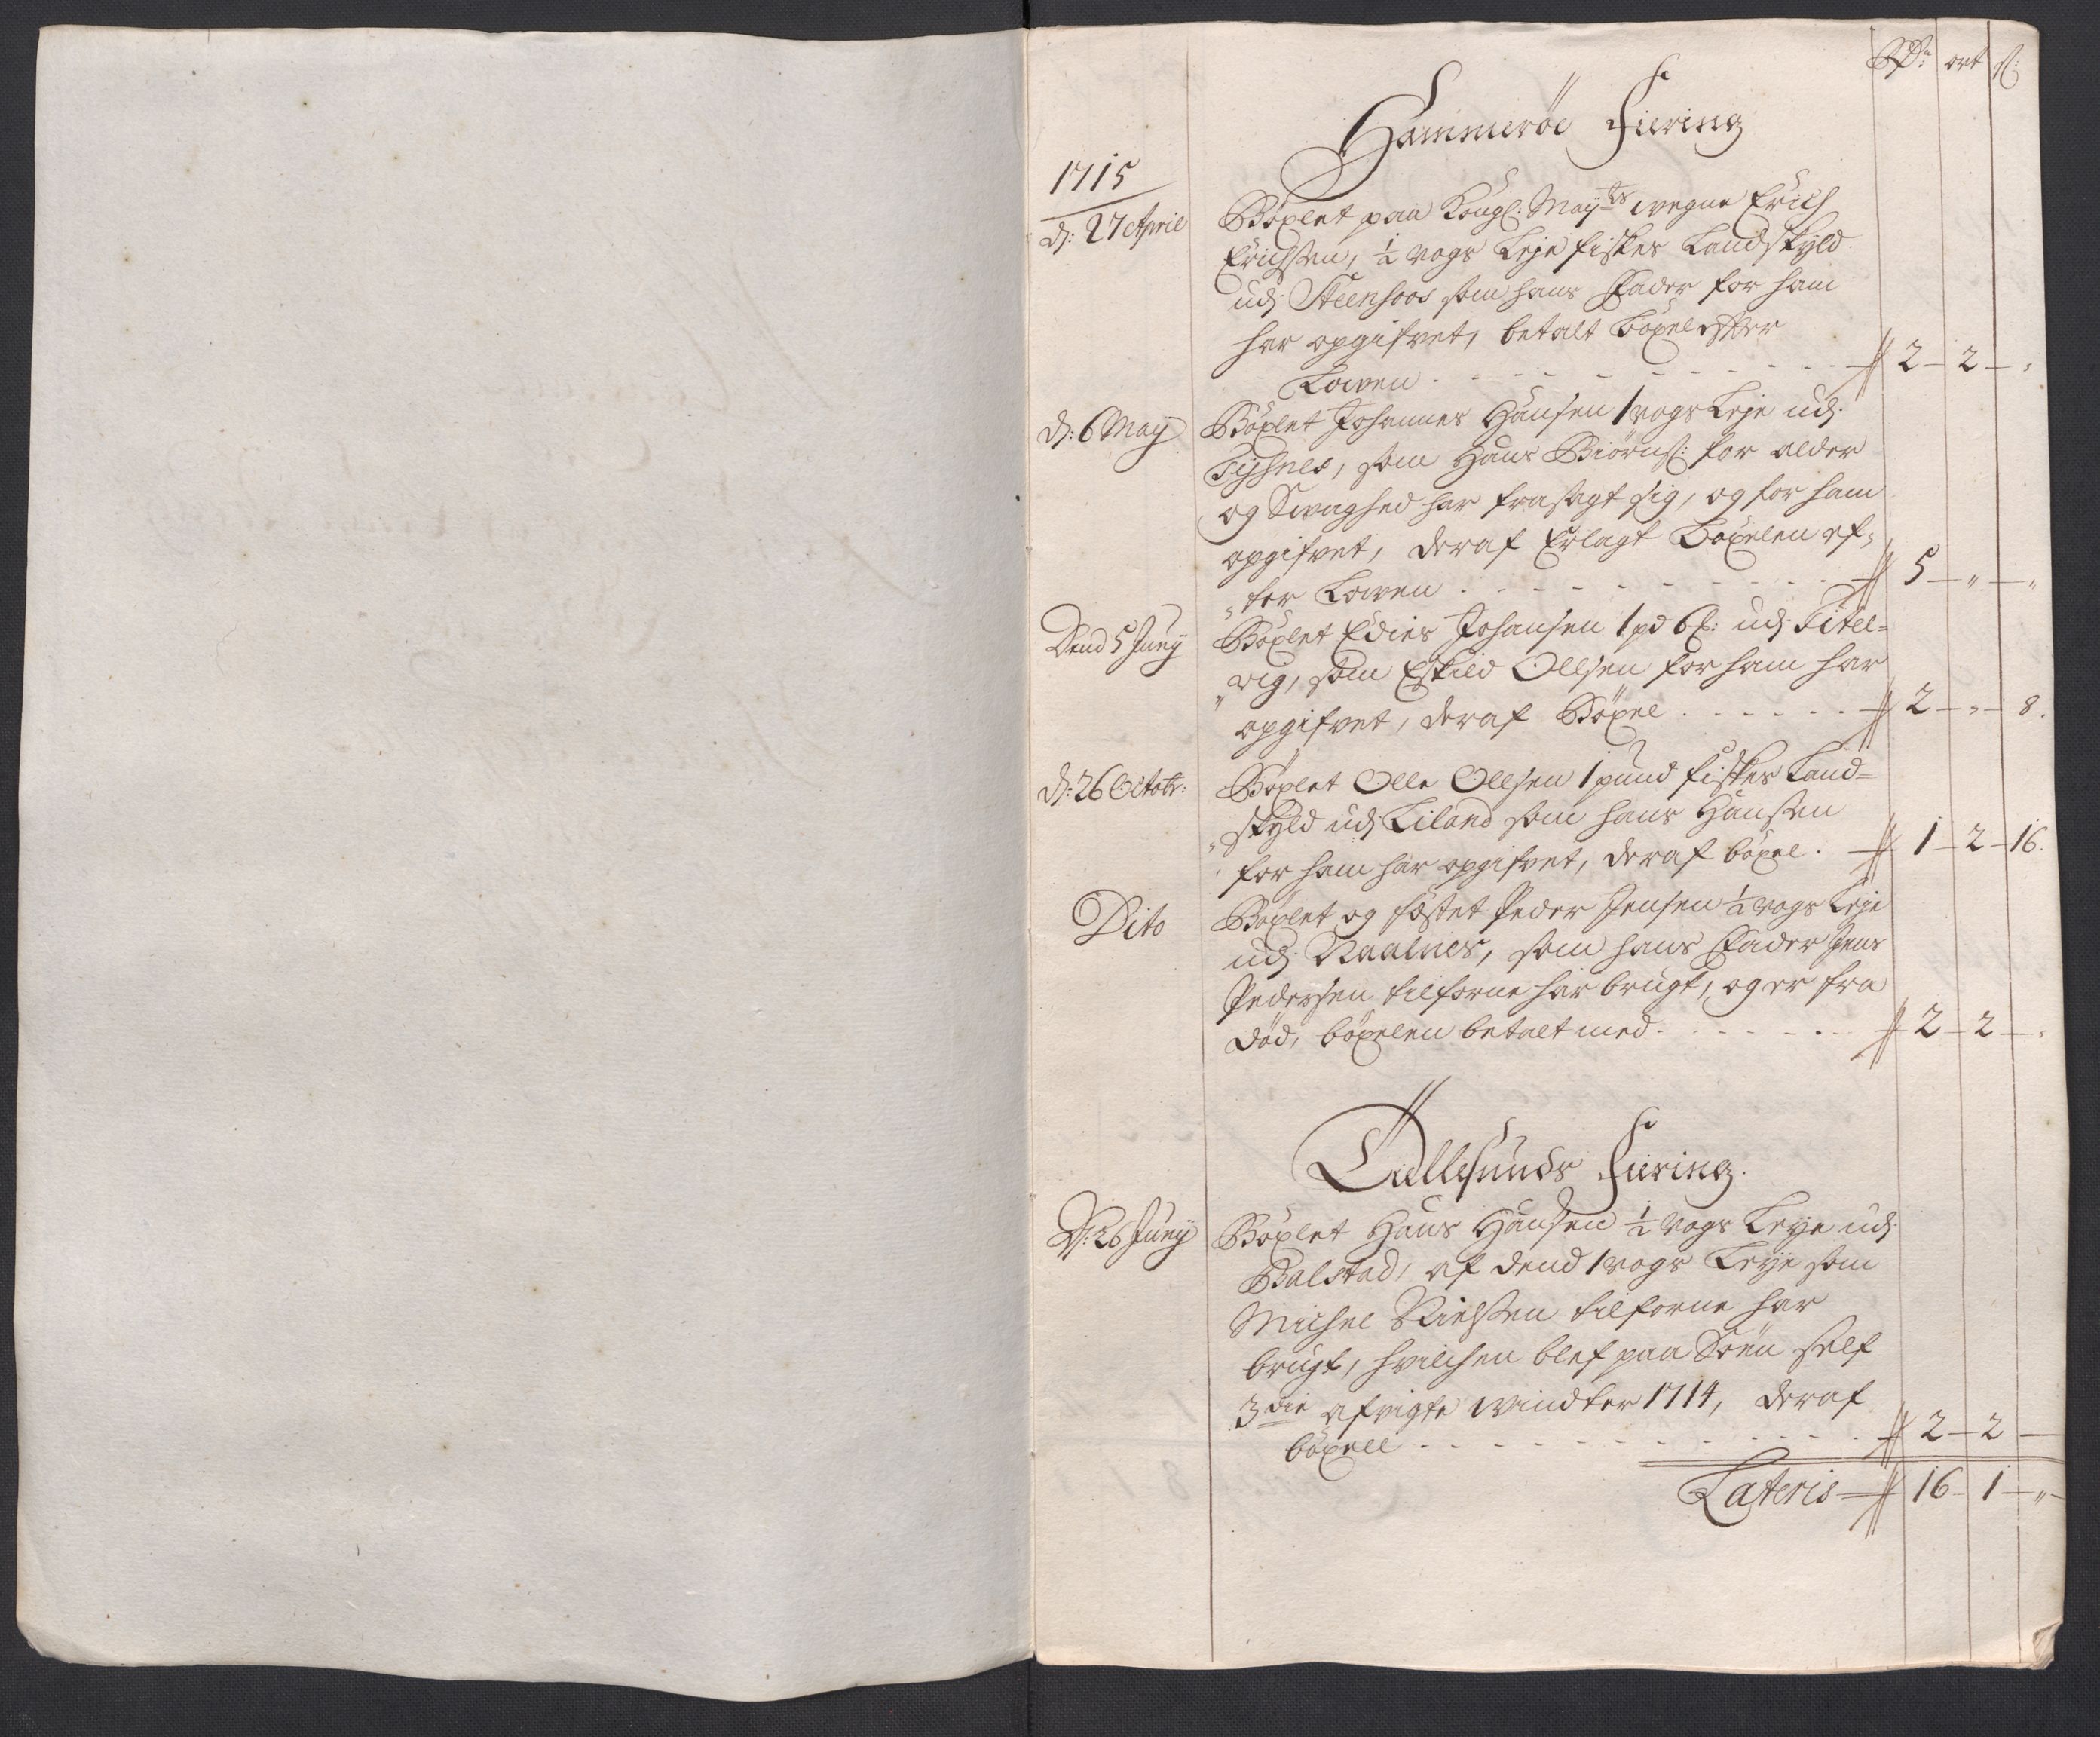 Rdr: ort ß:
Hammerøe Fiering
1715
d: 27 April Böxlet paa Kongl: Mayts wegne Erich
Erichsen, 1/2 vogs Leje fiskes Landskyld
udj Steensoos som hans Fader for ham
har opgifvet, betalt Böxel effter
Lowen - - - - - 2 - 2 - "
d: 6 May Böxlet Johannes Hansen 1 vogs Leje udj
Tyshnes, som Hans Biørns: for alder
og Swaghed har frasagt sig, og for ham
opgifvet, deraf Erlagt Böxelen ef-
"ter Lowen - - - - - 5 - " - "
Dend 5 Juny Böxlet Edies Johansen 1 pd 6 ß: udj Fitel-
"wig, som Eskild Ollsen for ham har
opgifvet, deraf Böxel - - - - - 2 - " - 8.
d: 26 Octobr: Böxlet Olle Ollsen 1 pund fiskes Land-
"skyld udj Liland som hans Hansen
for ham har opgifvet, deraf böxel. - 1 - 2 - 16.
Dito Böxlet og fæstet Peder Jensen 1/2 vogs Leje
udj Naalnes, som hans Fader Jens
Pedersen tilforne har brugt, og er fra
død, böxelen betalt med - - - - - 2 - 2 - "
Lillesunds Fiering.
D: 26 Juny Böxlet Hans Hansen 1/2 vogs Leye udj
Balstad, af dend 1 vogs Leye som
Michel Nielsen tilforne har
brugt, hvilchen blef paa Söen self
3die afvigte windter 1714, deraf
böxell - - - - - 2 - 2 -
Lateris - 16 - 1 - "